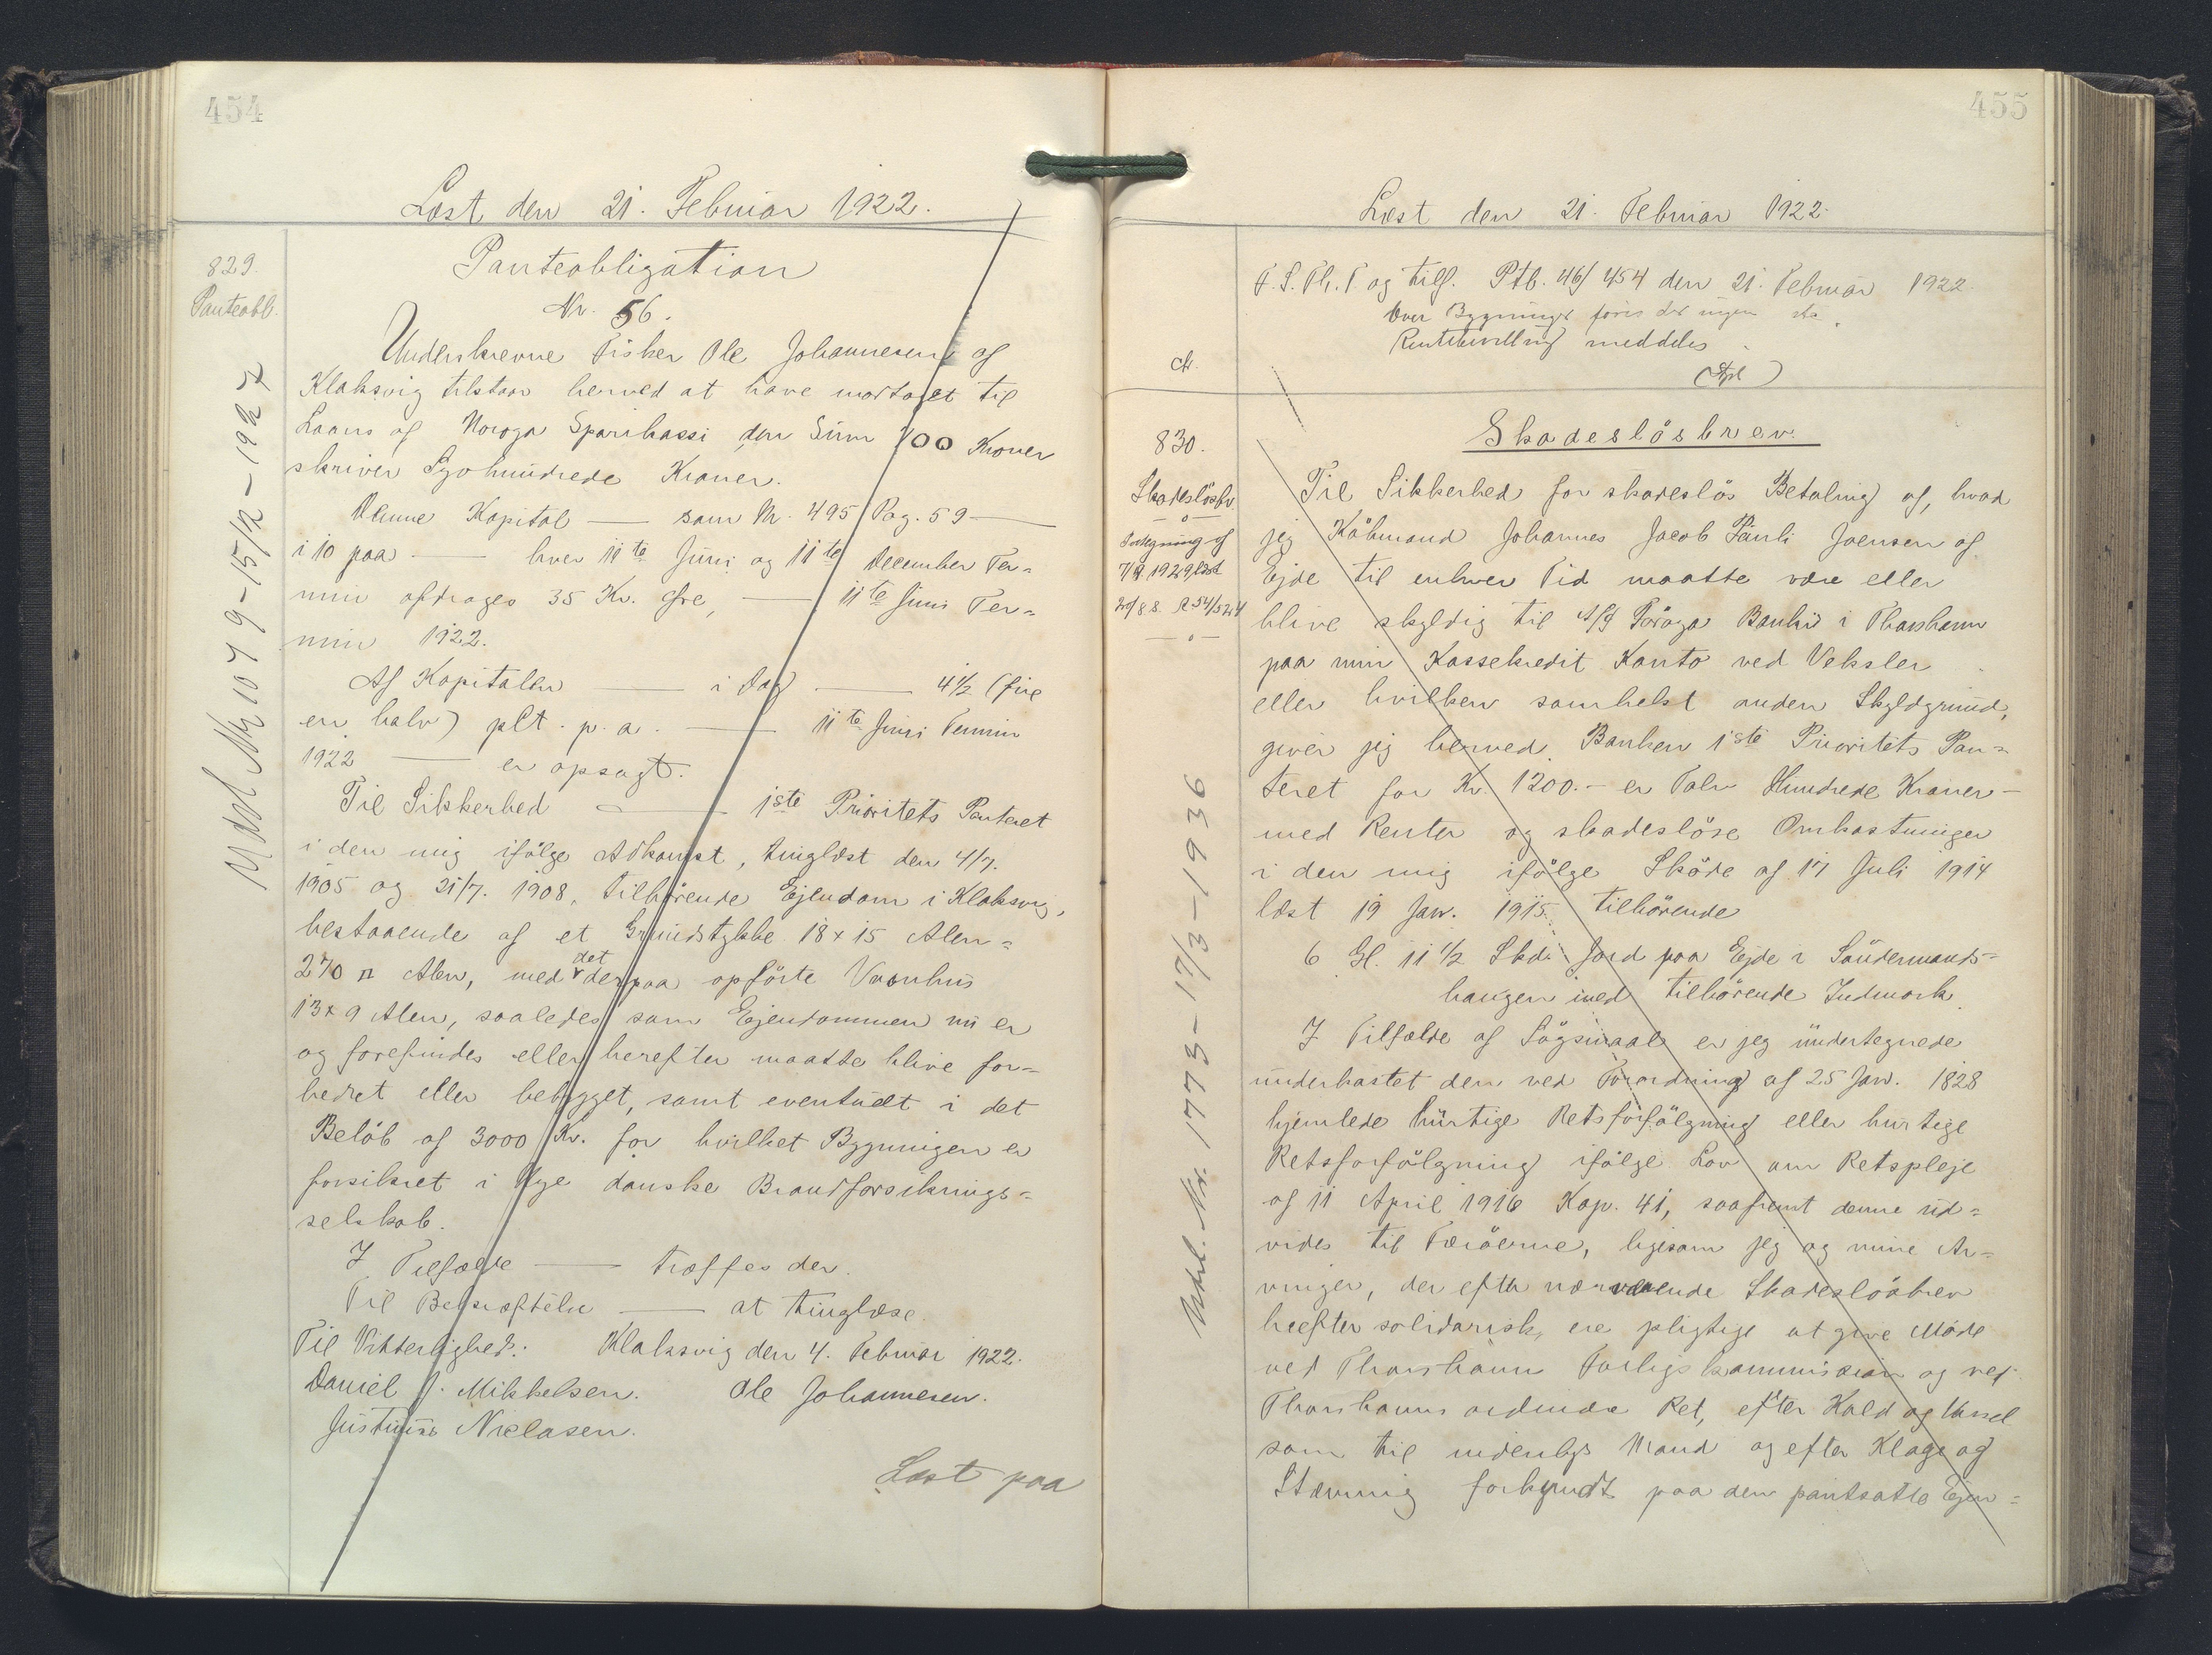 454
Læst den 21. Februar 1922.
829.
Panteobl.
Panteobligation
Nr. 56.
Underskrevne Fisker Ole Johannesen af
Klaksvig tilstaar herved at have modtaget til
Laans af Noroya Sparikassi den Sum 700 Kroner
skriver Syvhundrede Kroner.
Denne Kapital — som Nr. 495 Pag. 59 —
i 10 paa — hver 11te Juni og 11te December Ter=
min afdrages 35 Kr. Øre, — 11te Juni Ter=
min 1922.
Af Kapitalen — i Dag — 4 1/2 (fire
en halv) pCt. p. a. — 11te Juni Termin
1922 — er opsagt.
Til Sikkerhed — 1ste Prioritets Panteret
i den mig ifölge Adkomst, tinglæst den 4/7.
1905 og 21/7. 1908, tilhörende Ejendom i Klaksvig,
bestaaende af et Grundstykke 18 x 15 Alen =
270 □ Alen, med det derpaa opförte Vaanhus
13 x 9 Alen, saaledes som Ejendommen nu er
og forefindes eller herefter maatte blive for=
bedret eller bebygget, samt eventuelt i det
Belöb af 3000 Kr. for hvilket Bygningen er
forsikret i Nye danske Brandforsikrings=
selskab.
I Tilfælde — træffes der.
Til Bekræftelse — at tinglæse.
Til Vitterlighed: Klaksvig den 4. Februar 1922.
Daniel J. Mikkelsen. Ole Johannesen.
Justinus Niclasen.
Læst paa
Udsl. Nr 1079-15/12-1927
455
Læst den 21. Februar 1922.
F. S. Th. T og tilf. Ptb. 46/454 den 21. Februar 1922.
Over Bygninger föres der ingen
meddeles
830.
Skadeslösbr.
af
7/9 1929 læst
Skadeslösbrev.
Til Sikkerhed for skadeslös Betaling af, hvad
jeg Köbmand Johannes Jacob Pauli Joensen af
Ejde til enhver Tid maatte være eller
blive skyldig til A/S Föroya Banki i Thorshavn
paa min Kassekredit Konto ved Veksler
eller hvilken somhelst anden Skyldgrund,
giver jeg herved Banken 1ste Prioritets Pan=
teret for Kr. 1200.- er Tolv Hundrede Kroner -
med Renter og skadeslöse Omkostninger
i den mig ifölge Sköde af 17 Juli 1914
læst 19 Jan. 1915. tilhörende
6 Gl. 11 1/2 Skd. Jord paa Ejde i Söndermands=
haugen med tilhörende Indmark.
I Tilfælde af Sögsmaal er jeg undertegnede
underkastet den ved Forordning af 25 Jan. 1828
hjemlede hurtige Retsforfölgning eller hurtige
Retsforfölgning ifölge Lov om Retspleje
af 11 April 1916 Kap. 41, saafremt denne ud=
vides til Færöerne, ligesom jeg og mine Ar=
vinger, der efter nærværende Skadeslösbrev
hæfter solidarisk, ere pligtige at give Möde
ved Thorshavn Forligskommission og ved
Thorshavns ordinære Ret, efter Kald og Varsel
som til indenbys Mand og efter Klage og
Stævning forkyndt paa den pantsatte Ejen=
Udsl. Nr. 1773-17/3-1936